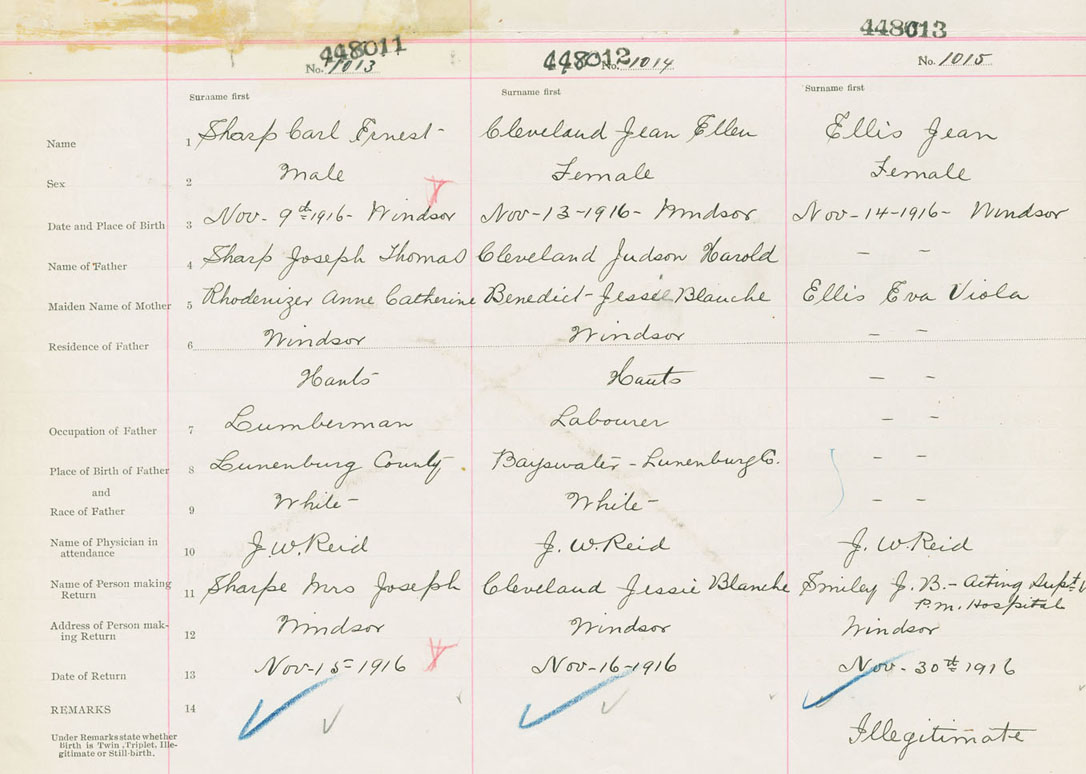 448011 448012 448013
No. 1013 No. 1014 No. 1015
Surname first Surname first Surname first
Name 1 Sharp Carl Ernest- Cleveland Jean Ellen Ellis Jean
Sex 2 Male Female Female
Date and Place of Birth 3 Nov- 9th 1916- Windsor Nov-13-1916- Windsor Nov-14-1916- Windsor
Name of Father 4 Sharp Joseph Thomas Cleveland Judson Harold — —
Maiden Name of Mother 5 Rhodenizer Anne Catherine Benedict-Jessie Blanche Ellis Eva Viola
Residence of Father 6 Windsor Windsor — —
Hants Hants — —
Occupation of Father 7 Lumberman Labourer — —
Place of Birth of Father 8 Lunenburg County Bayswater-Lunenburg Co. — —
and
Race of Father 9 White- White- — —
Name of Physician in
attendance 10 J. W. Reid J. W. Reid J. W. Reid
Name of Person making
Return 11 Sharpe Mrs Joseph Cleveland Jessie Blanche Smiley J. B.- Acting Supt
P. M. Hospital
Address of Person mak-
ing Return 12 Windsor Windsor Windsor
Date of Return 13 Nov-15-1916 Nov-16-1916 Nov-30th 1916
REMARKS 14
Under Remarks state whether
Birth is Twin, Triplet, Ille-
gitimate or Still-birth.
Illegitimate